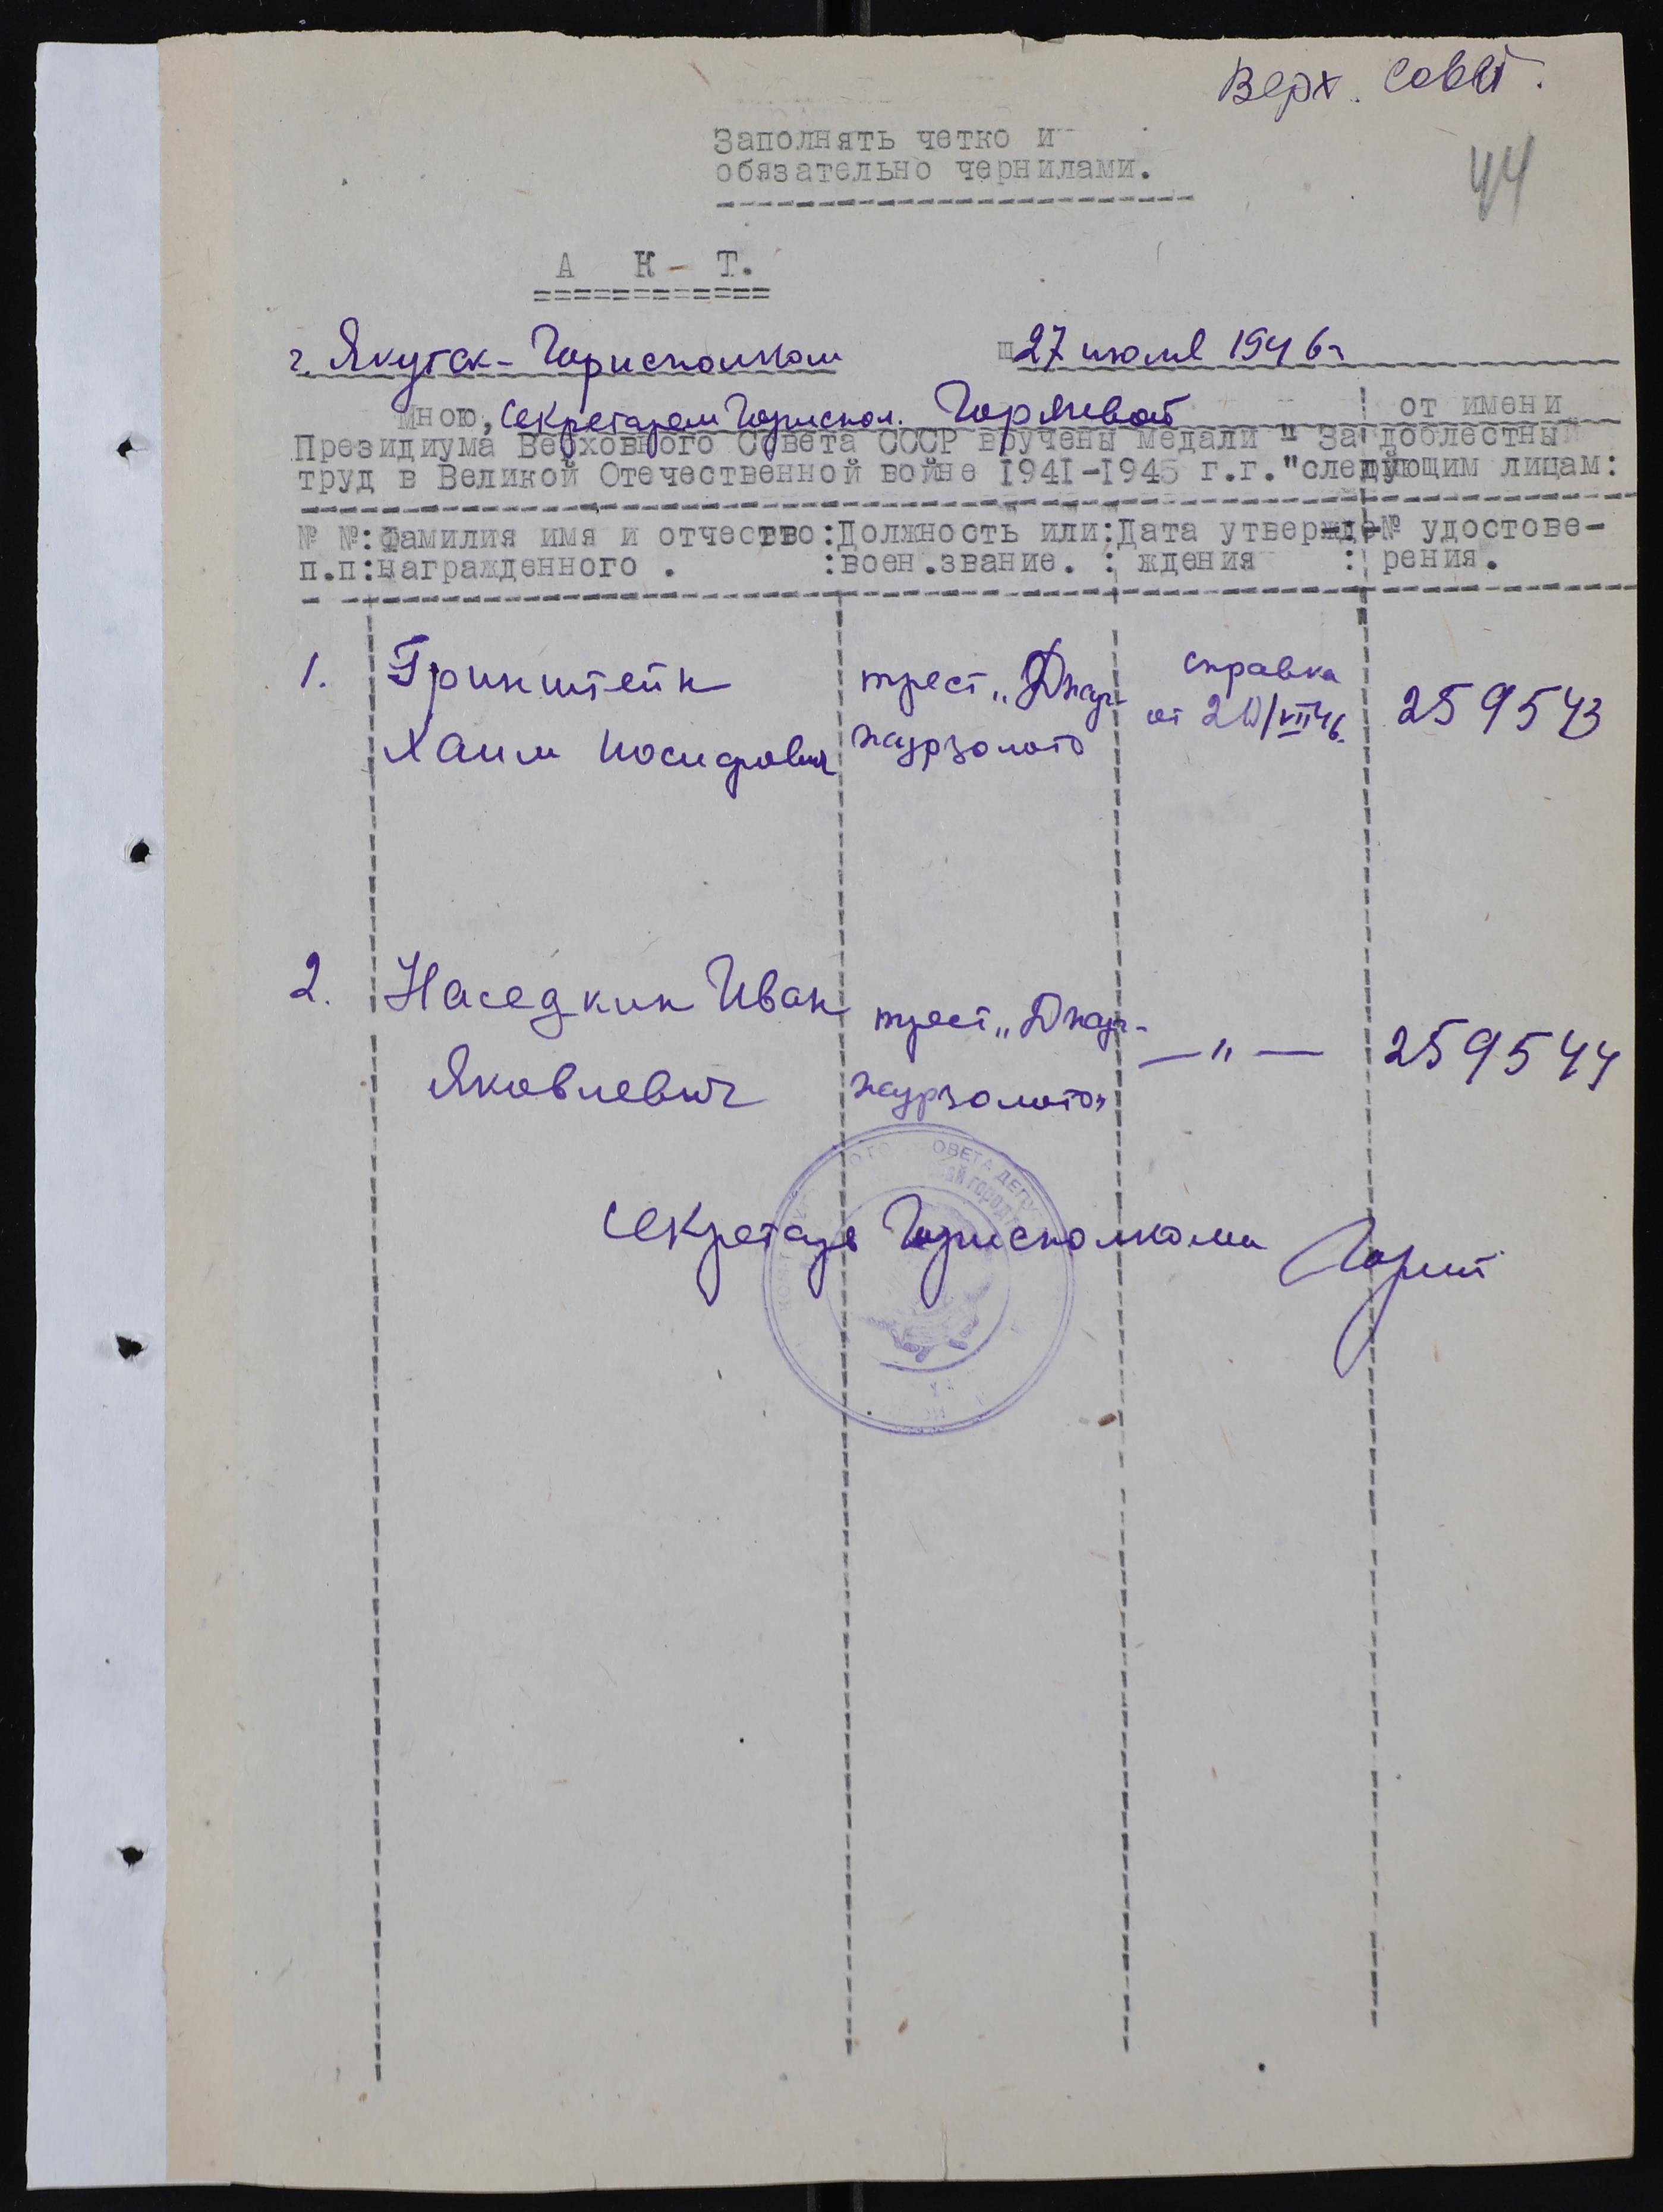 Верх. Совет.
44
Заполнять четко и
обязательно чернилами.
А К Т.
г. Якутск - Горисполком 27 июля 1946 г
Мною, секретарем Гориспол. Горяевой от имени
Президиума Верховного Совета СССР вручены медали " За доблестный
труд в Великой Отечественной войне 1941-1945 г.г." следующим лицам:
№ №: Фамилия имя и отчество: Должность или: Дата утвержде № удостове-
п.п: награжденного . : воен.звание. : ждения : рения.
1. Гринштейн трест „Джуг- справка
от 20/VII 46. 259543
Хаим Иосифович журзолото
2. Наседкин Иван трест „Джуг- — " — 259544
Яковлевич журзолото"
ОВЕТА ДЕПУ
Секретарь Горисполкома